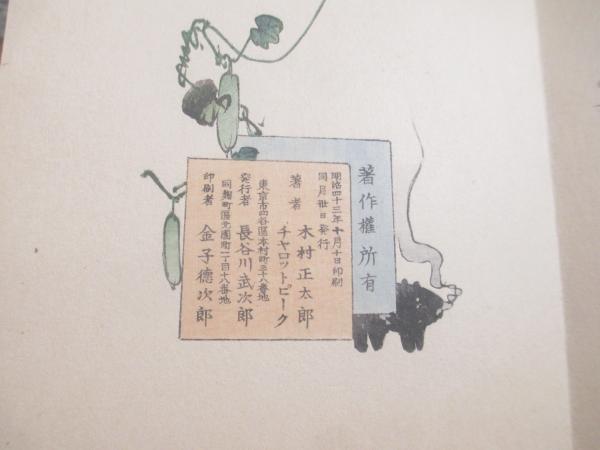 著作權所有
明治四十三年十月十日印刷
同月卅日発行
著者 木村正太郎
チヤロツトピーク
東京市四谷區本村町三十八番地
発行者 長谷川武次郎
同麹町區元園町二丁目十八番地
印刷者 金子德次郎